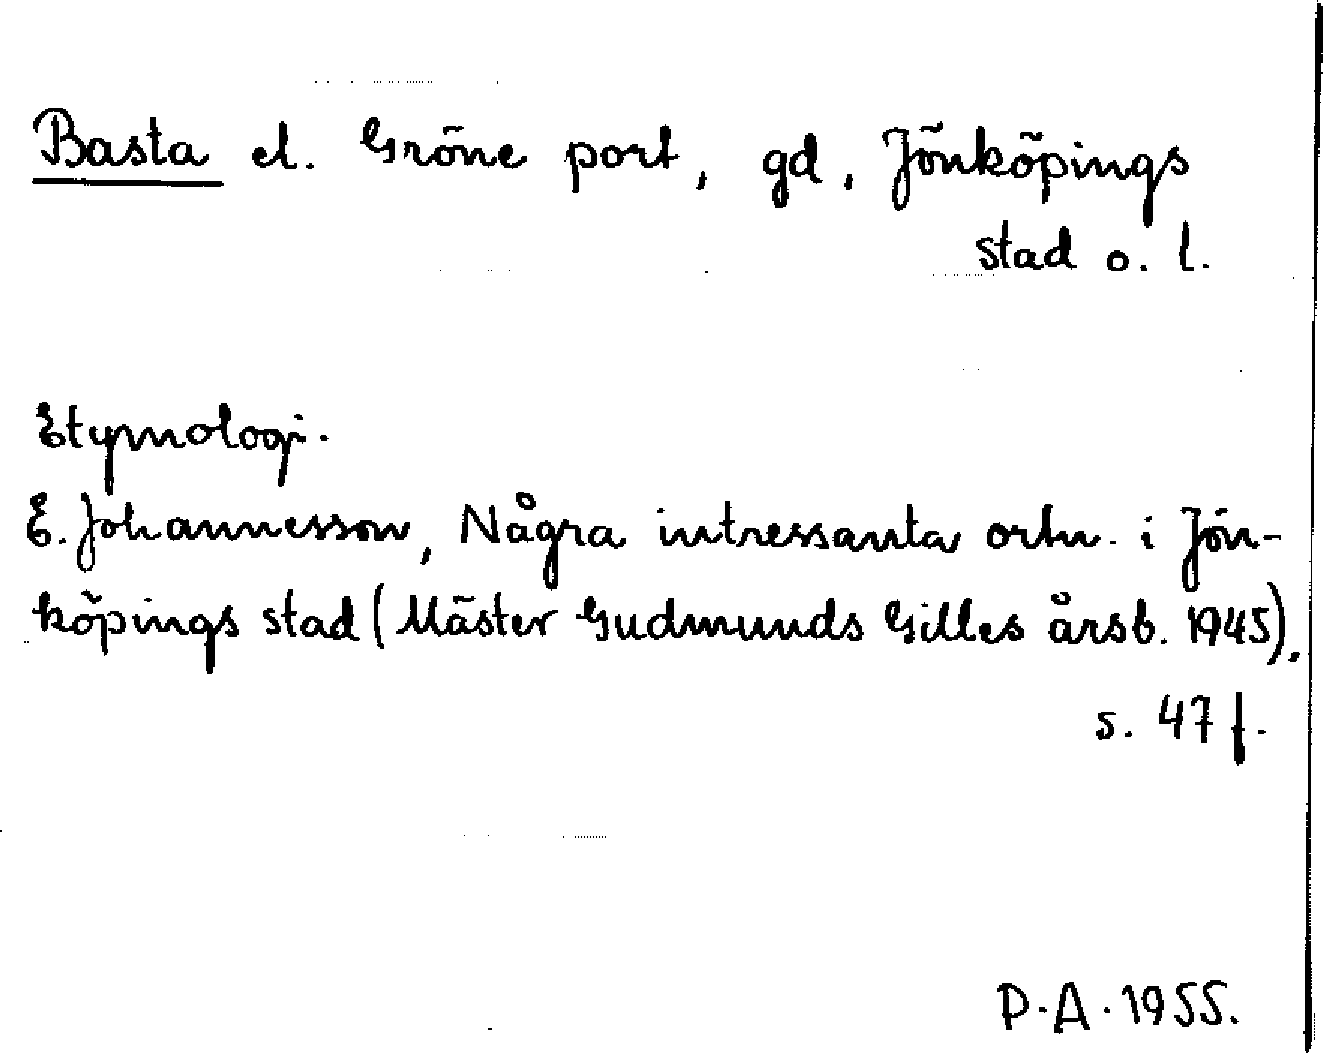 Basta el. Gröne port, gd, Jönköpings
stad o. l.
Etymologi.
E. Johannesson, Några intressanta ortn. i Jön-
köpings stad (Mäster Gudmunds Gilles årsb. 1945),
s. 47 f.
P. A. 1955.